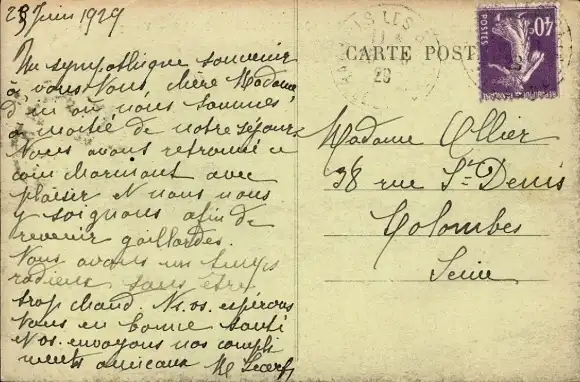 28 Juin 1929
Un sympathique souvenir
à vous tous, chère Madame
d'ici où nous sommes
à moitié de notre séjour
Nous avons retrouvé ce
coin charmant avec
plaisir et nous nous
y soignons afin de
revenir gaillardes.
Nous avons un temps
radieux sans être
trop chaud. Ns. os. espérons
tous en bonne santé
Nos. envoyons nos compli
ments amicaux
CARTE POST
28
POSTES
40c
Madame Ollier
38 rue St-Denis
Colombes
Seine